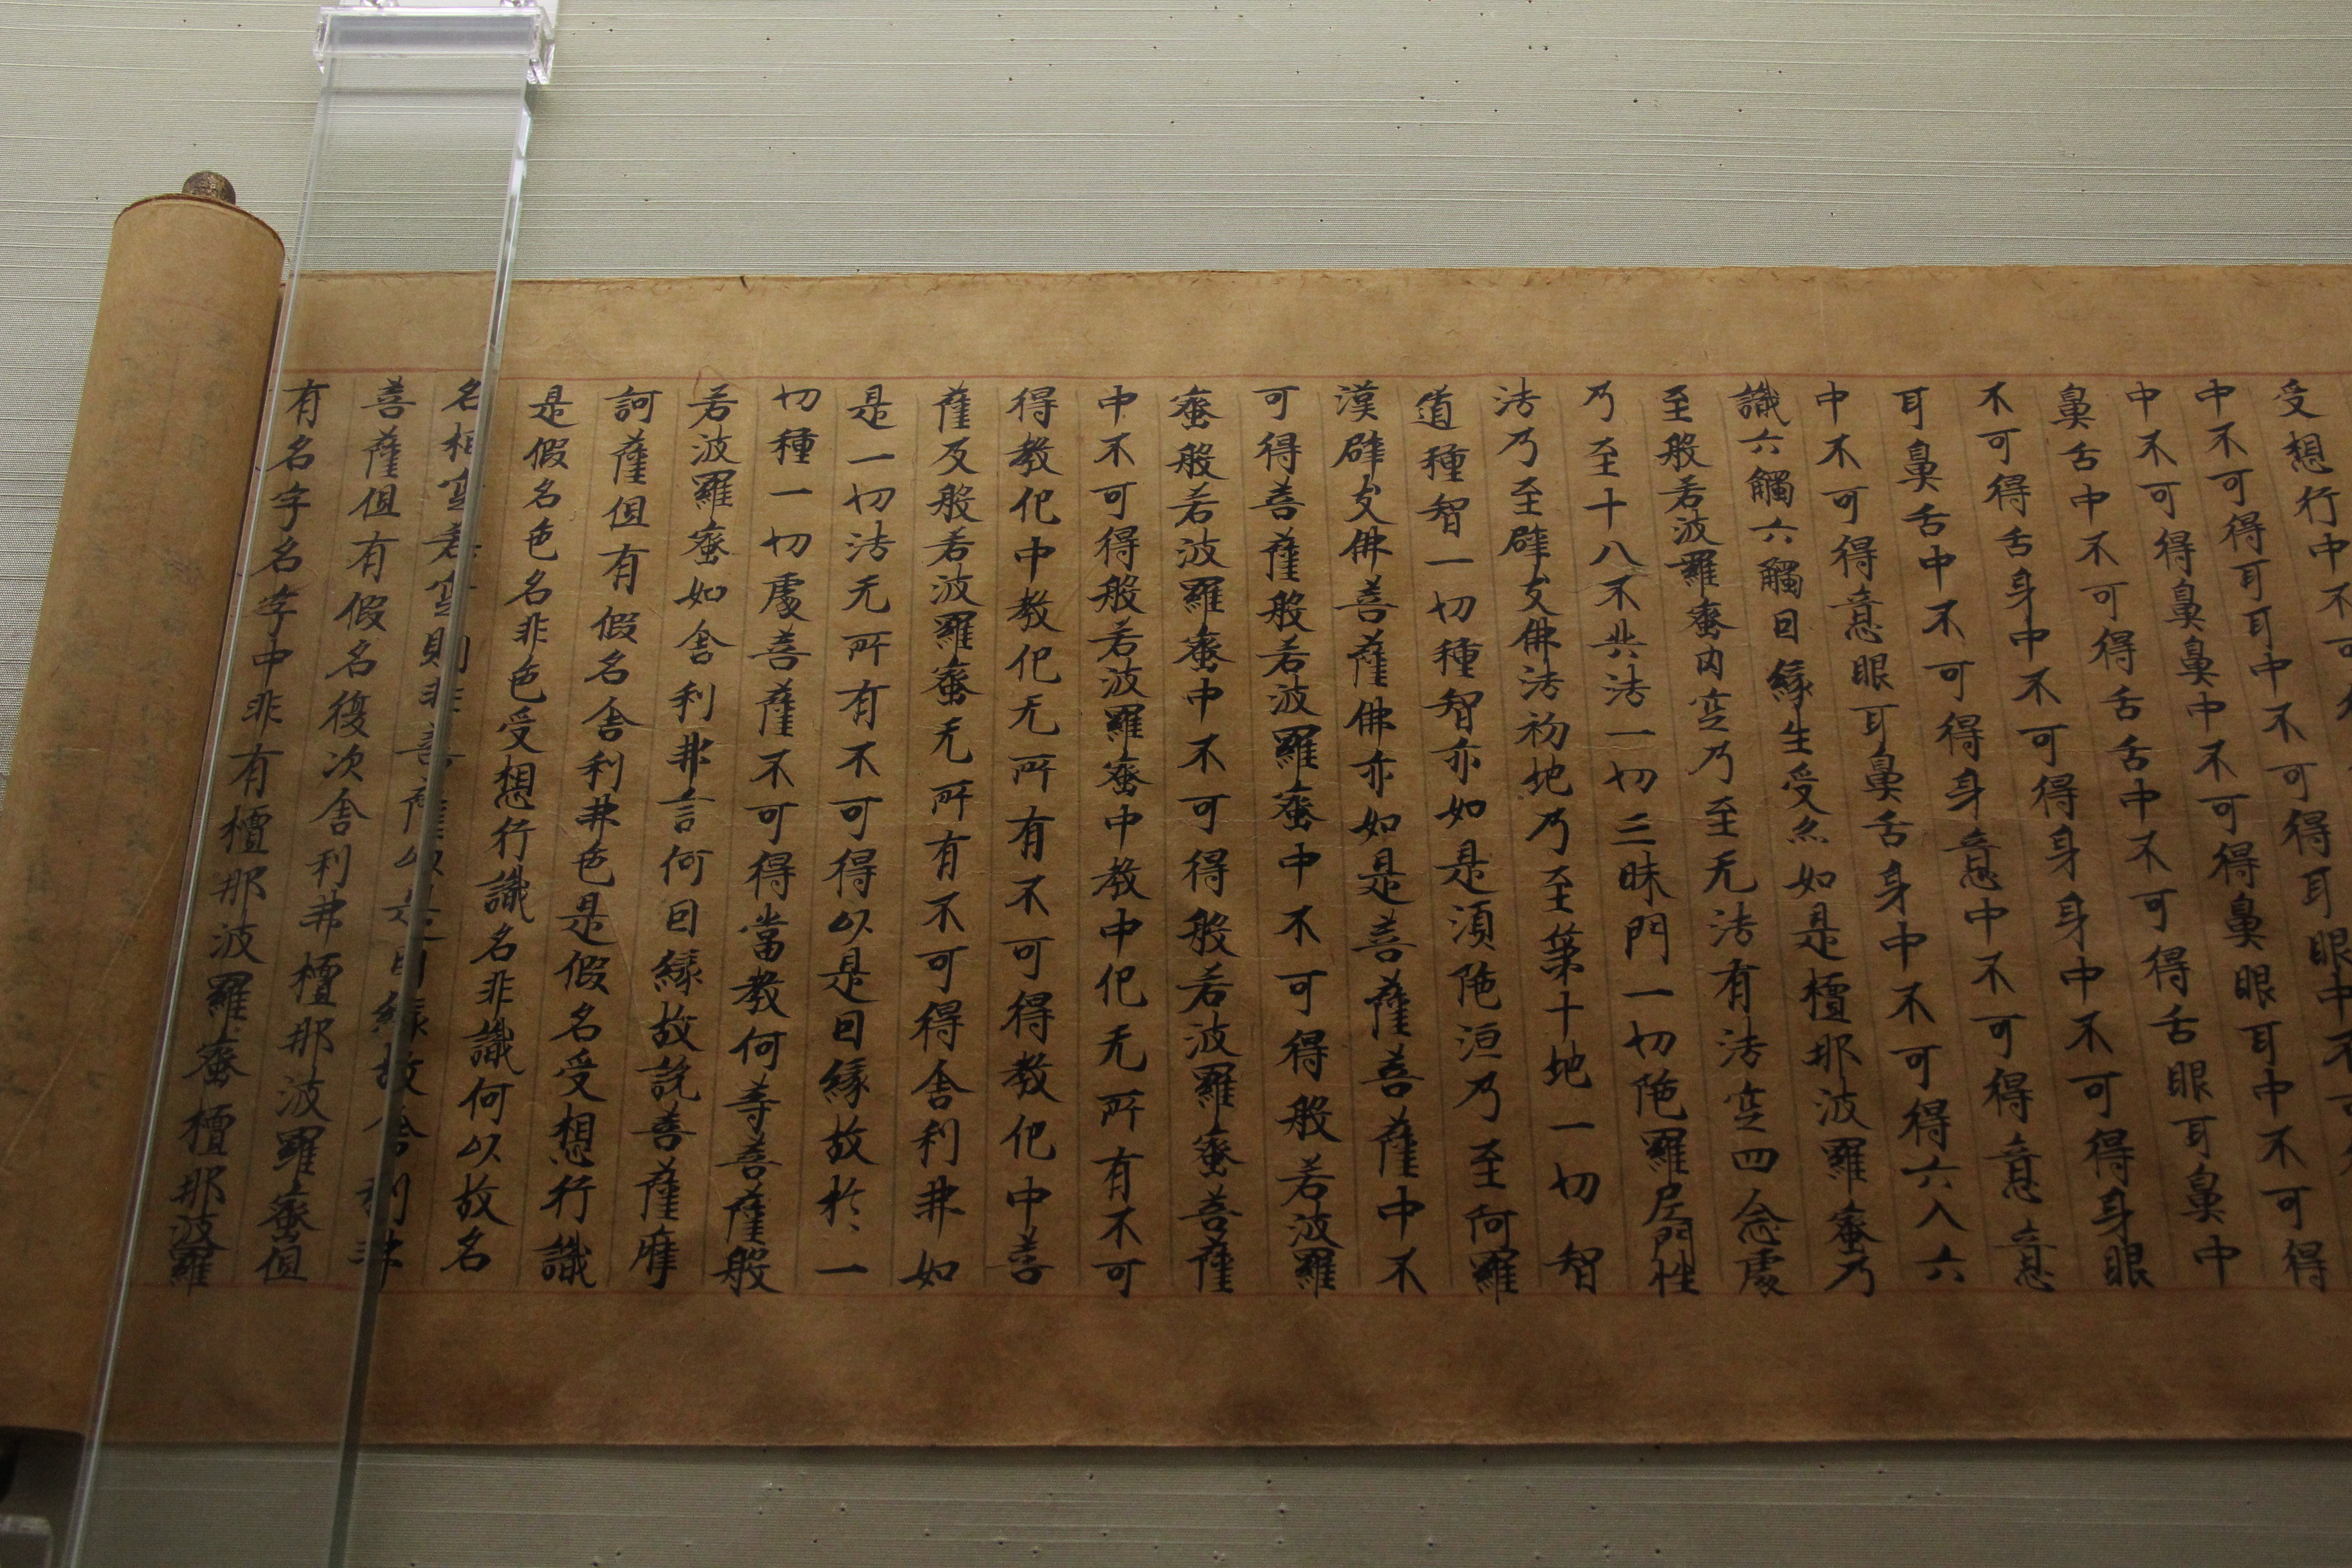 受想行中不可
中不可得耳耳中不可得耳眼中不可
中不可得鼻鼻中不可得鼻眼耳中不可得
鼻舌中不可得舌舌中不可得舌眼耳鼻中
不可得舌身中不可得身身中不可得身眼
耳鼻舌中不可得身意中不可得意意
中不可得意眼耳鼻舌身中不可得六入六
識六觸六觸因緣生受亦如是檀那波羅蜜乃
至般若波羅蜜内空乃至无法有法空四念處
乃至十八不共法一切三昧門一切陁羅尼門性
法乃至辟支佛法初地乃至第十地一切智
道種智一切種智亦如是湏陁洹乃至阿羅
漢辟支佛菩薩佛亦如是菩薩菩薩中不
可得菩薩般若波羅蜜中不可得般若波羅
蜜般若波羅蜜中不可得般若波羅蜜菩薩
中不可得般若波羅蜜中教中化无所有不可
得教化中教化无所有不可得教化中菩
薩及般若波羅蜜无所有不可得舍利弗如
是一切法无所有不可得以是因緣故於一
切種一切處菩薩不可得當教何等菩薩般
若波羅蜜如舍利弗言何因緣故説菩薩摩
訶薩但有假名舍利弗色是假名受想行識
是假名色名非色受想行識名非識何以故名
名相空若空則非菩薩以是因緣故舍利弗
菩薩但有假名復次舍利弗檀那波羅蜜但
有名字名字中非有檀那波羅蜜檀那波羅